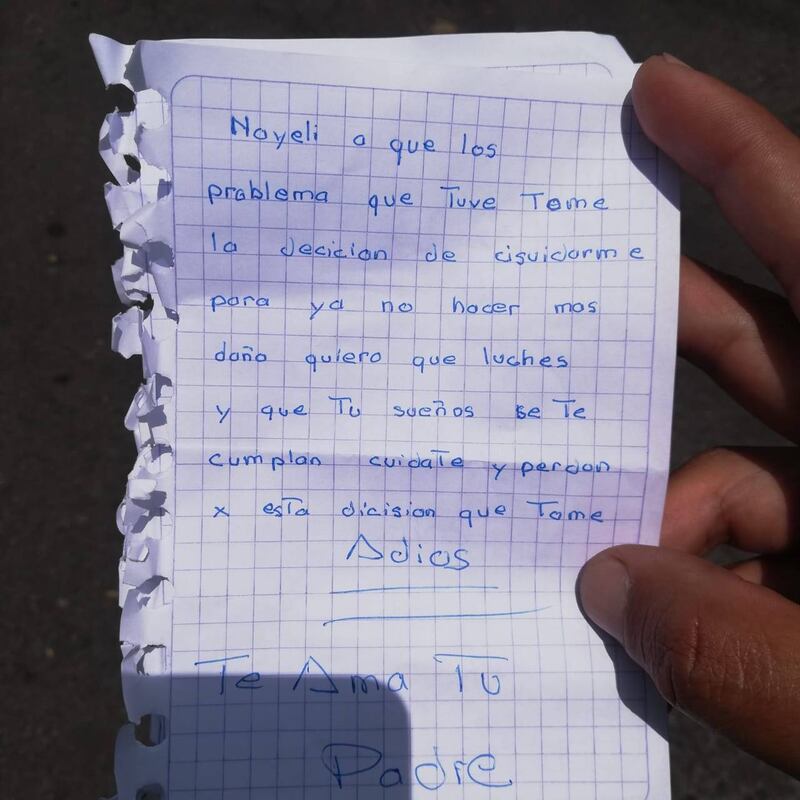 Nayeli a que los
problema que Tuve Tome
la decicion de cisuidarme
para ya no hacer mas
daño quiero que luches
y que Tu sueños se Te
cumplan cuidaTe y perdon
x esTa dicision que Tome
Adios
Te Ama Tu
Padre